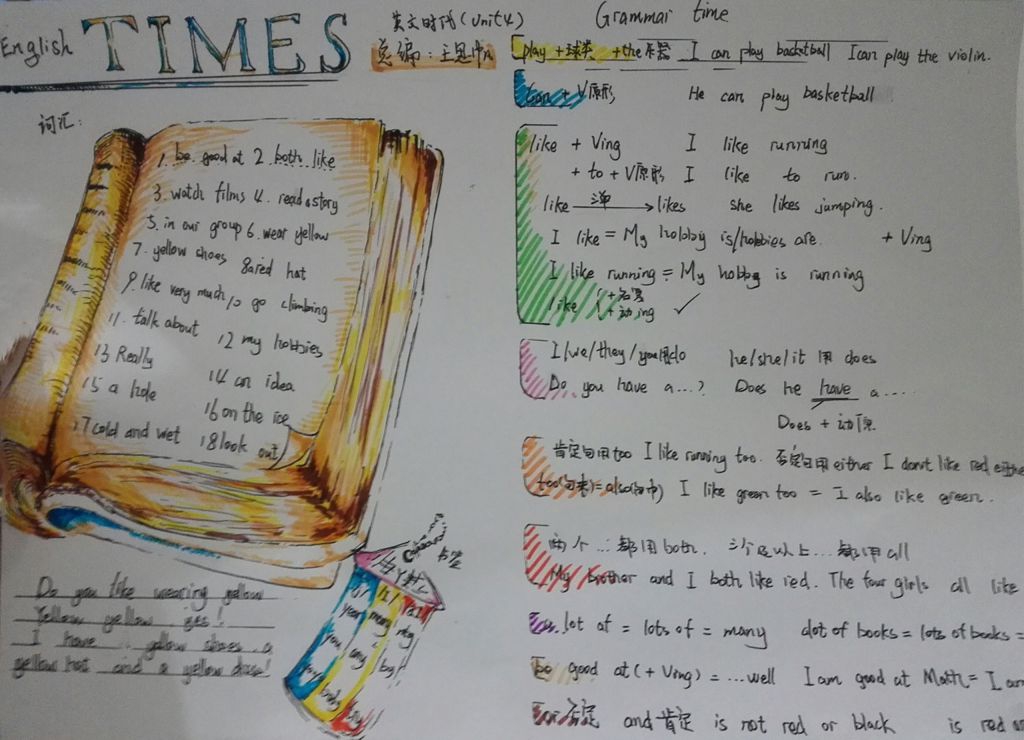 English TIMES
英文时代(Unit4)
总编:王思
Grammar time
play + 球类 +the 乐器 I can play basketball I can play the violin.
Can + V原形 He can play basketball
词汇:
1. be good at 2. both like
3. watch films 4. read a story
5. in our group 6. wear yellow
7. yellow shoes 8 a red hat
9. like very much 10 go climbing
11. talk about 12 my hobbies
13 Really 14 an idea
15 a hole 16 on the ice
17 cold and wet 18 look out
like + Ving I like running
+ to + V原形 I like to run.
like 三单 → likes she likes jumping.
I like = My hobby is/hobbies are. + Ving
I like running = My hobby is running
like + 名复
+ 动ing ✓
I/we/they/you用do he/she/it 用 does
Do you have a...? Does he have a.....
Does + 动原
肯定句用too I like running too. 否定句用either I don't like red either
too(句末)=also(句中) I like green too = I also like green.
两个...都用both. 三个及以上...都用all
My brother and I both like red. The four girls all like
lot of = lots of = many alot of books = lots of books =
be good at (+ Ving) = ...well I am good at Math = I am
or 否定 and 肯定 is not red or black is red
Do you like wearing yellow
Yellow yellow yes!
I have yellow shoes a
yellow hat and a yellow